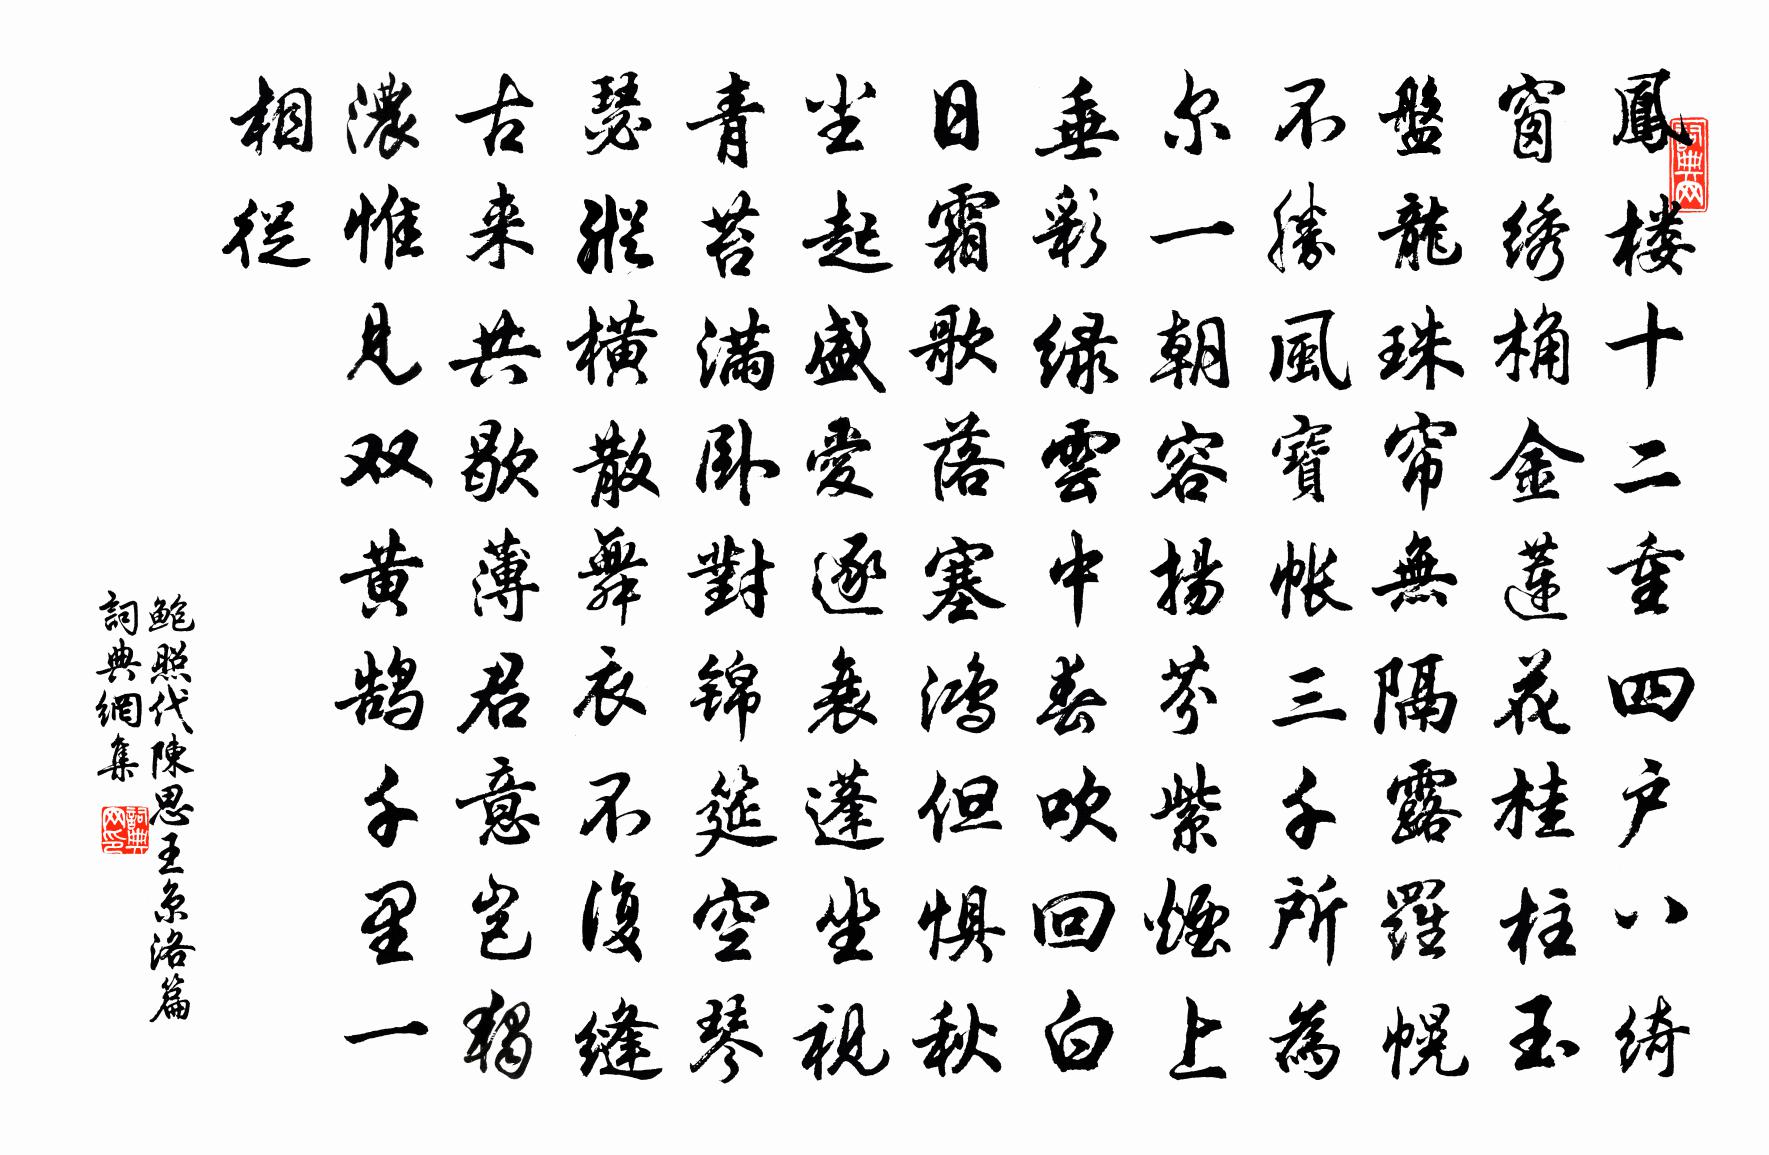 鳳楼十二重四户八綺
窗绣桷金蓮花桂柱玉
盤龍珠帘無隔露羅幌
不勝風寶帐三千所為
尔一朝容揚芬紫煙上
垂彩绿雲中春吹回白
日霜歌落塞鴻但惧秋
尘起盛愛逐衰蓬坐視
青苔满卧對锦筵空琴
瑟縱横散舞衣不復縫
古来共歇薄君意岂獨
濃惟見双黄鹄千里一
相從
鲍照代陳思王京洛篇
詞典網集
詞典网
詞典网印